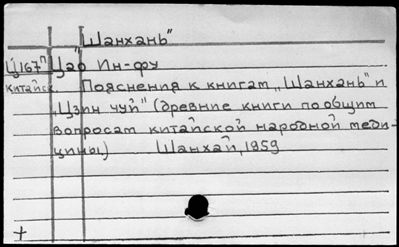 "Шанхань"
Ц167п Цао Ин-фу
китайск. Пояснения к книгам „Шанхань" и
„Цзин чуй" (древние книги по общим
вопросам китайской народной меди-
цины) Шанхай, 1959
+